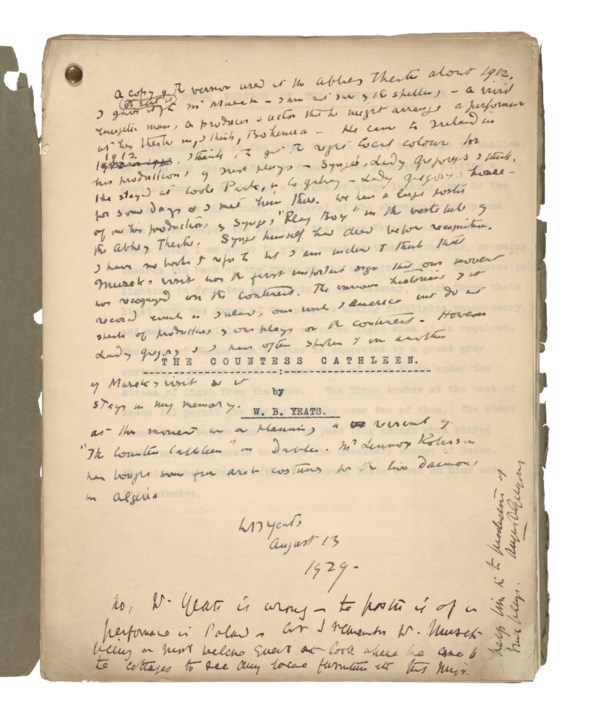 A copy of the version used at the Abbey Theatre about 1912.
I gave it to Mr Musek – I am not sure of the spelling – a
energetic man, a producer & actor that he might arrange a performance
at his theatre in, I think, Bohemia – He came to Ireland in
1912 I think, to get the right local colour for
his productions of Irish plays – Synge's, Lady Gregory's I think.
He stayed at Coole Park, Lady Gregory's house –
for some days & I met him there. We have a large poster
of one of his productions of Synge's "Play Boy" in the vestibule of
the Abbey Theatre. Synge himself had died before recognition.
I have no books to refer to but I am inclined to think that
Musek's visit was the first important sign that our movement
was recognized on the continent. The various histories of it
record events in Ireland, our work in America but do not
speak of productions of our plays on the continent. However
Lady Gregory & I have often spoken to one another
THE COUNTESS CATHLEEN.
of Musek's visit so it
stays in my memory.
by
W. B. YEATS.
at this moment we are planning a revival of
"The Countess Cathleen" in Dublin. Mr Lennox Robinson
has bought some fine arab costumes for the two Daemons,
in Algeria
WB Yeats
August 13
1929.
No, Mr Yeats is wrong – the poster is of a
performance in Poland – but I remember Mr Musek
being a most welcome guest at Coole where he came to
the cottages to see any local furniture etc that might
help him in the production of
our plays. A Gregory